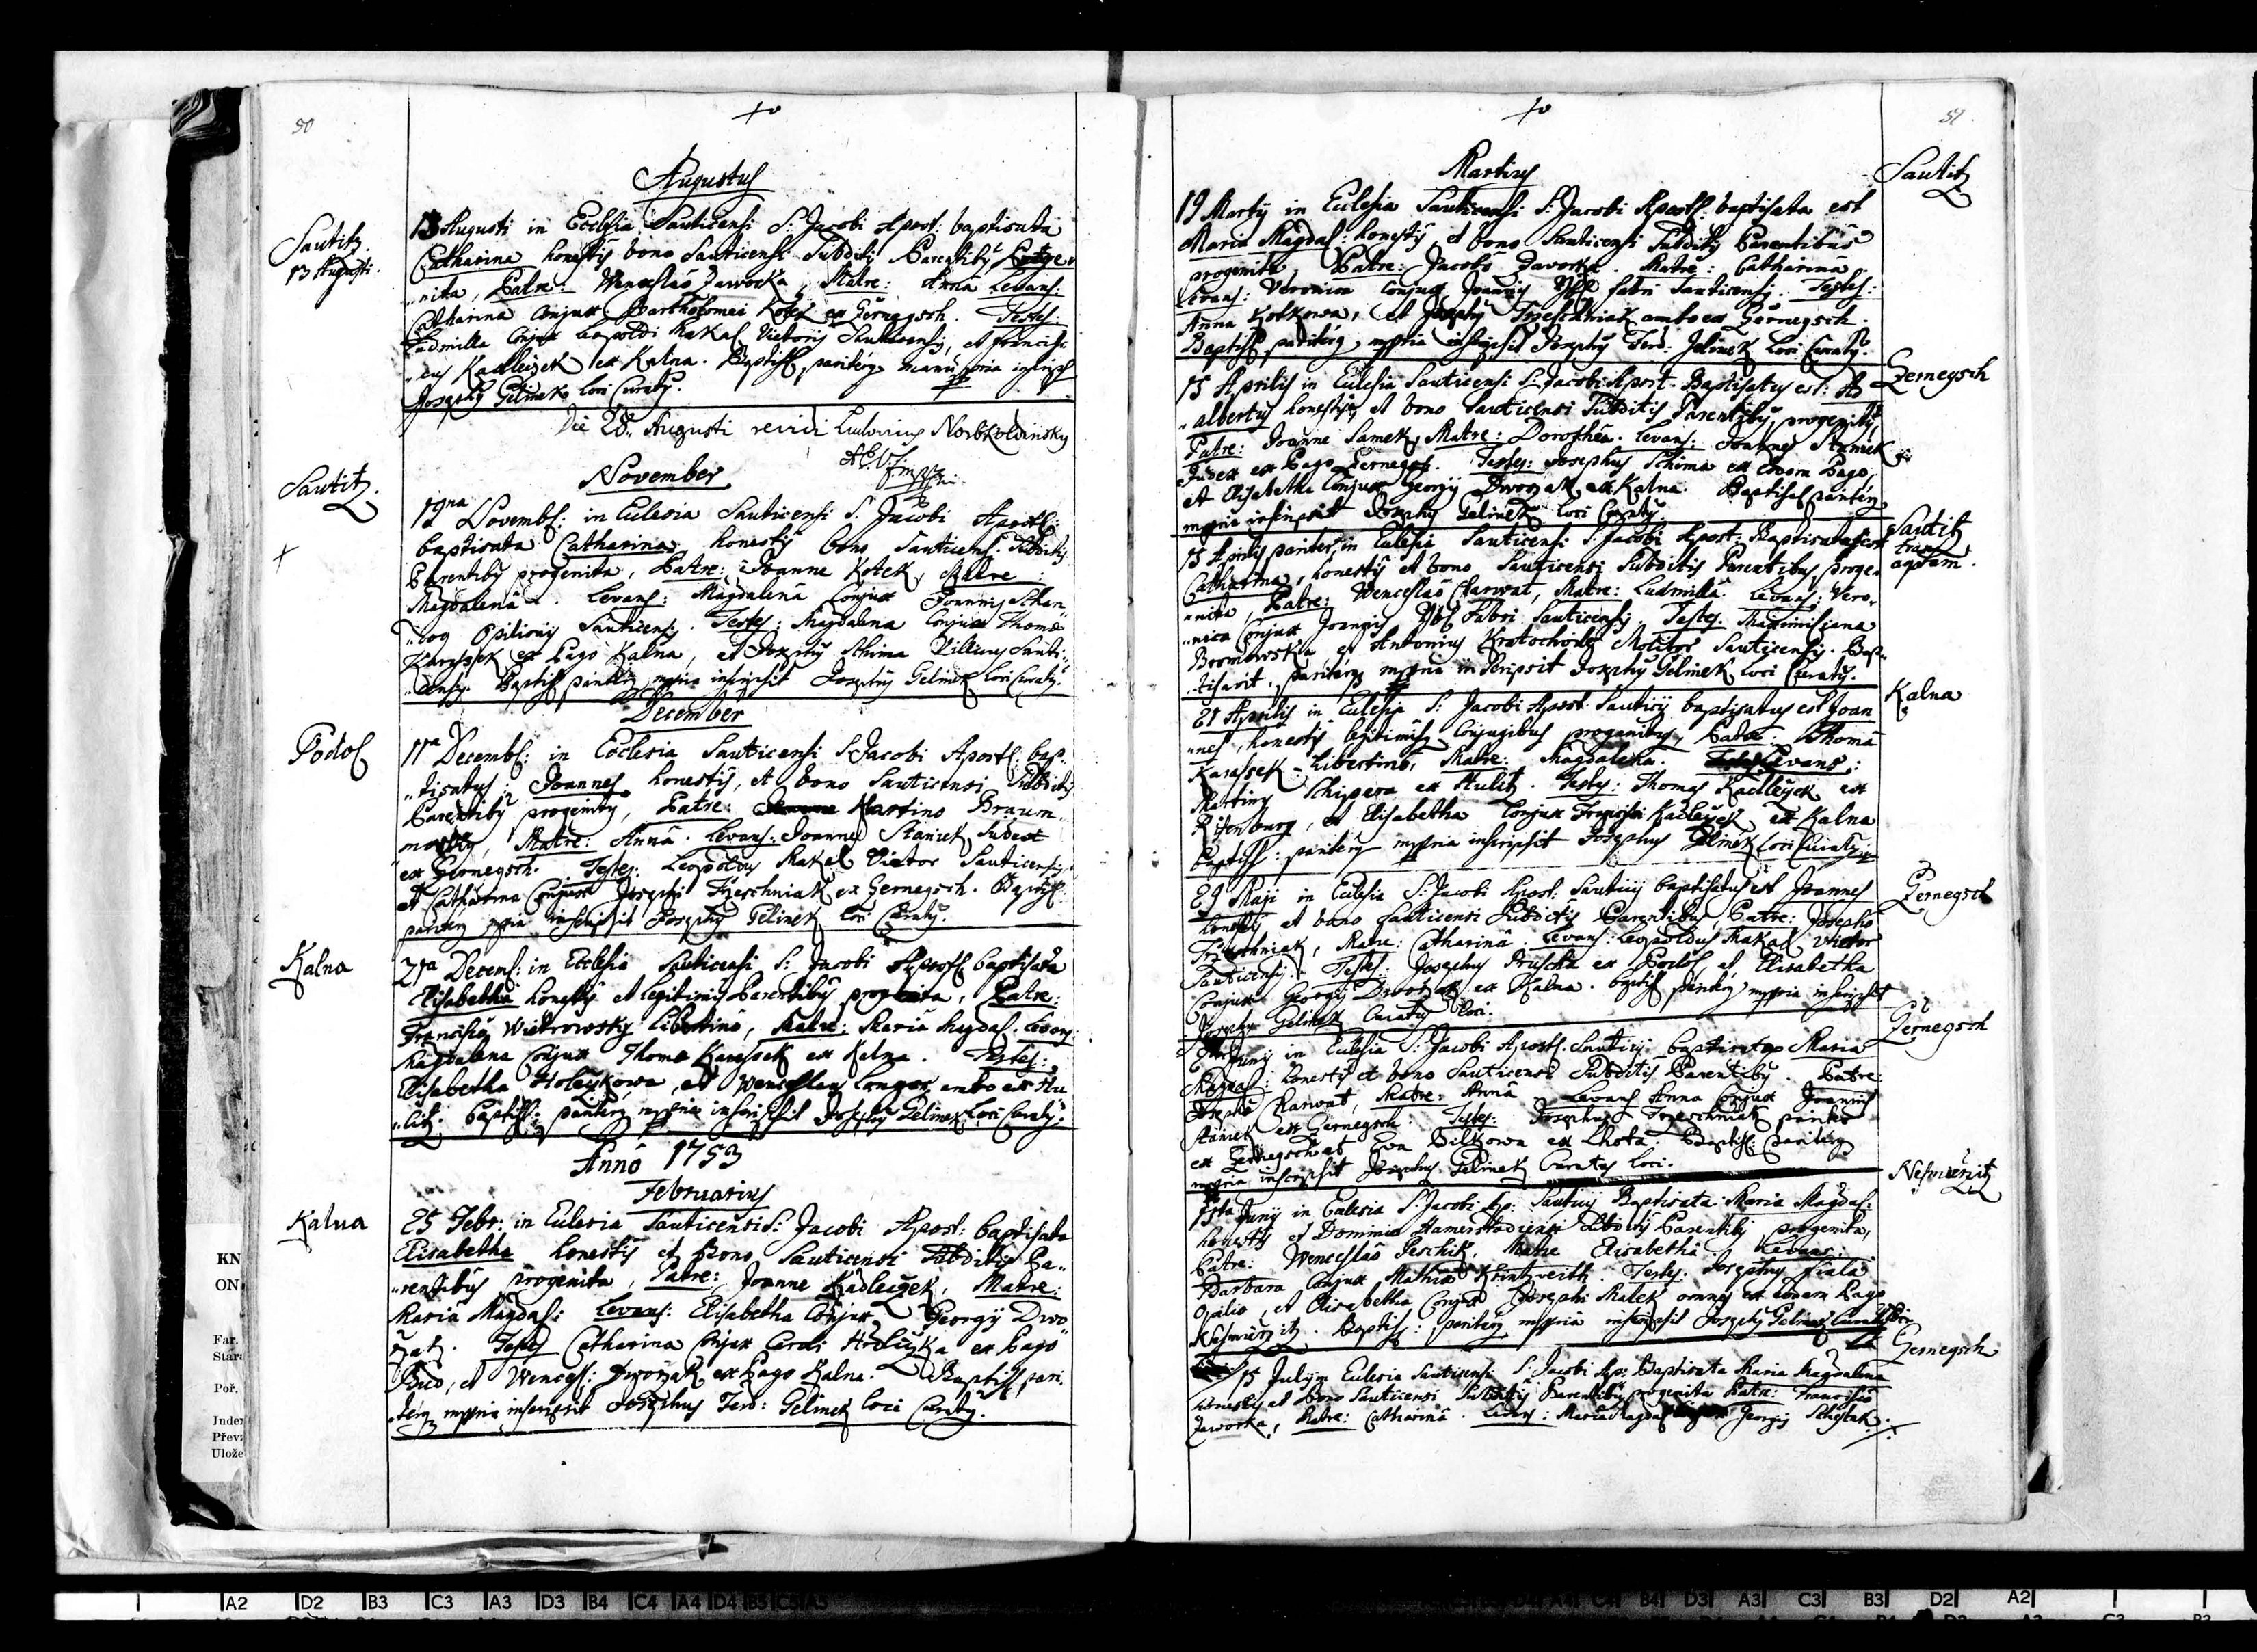 50
Augustus
Sautitz.
13 Augusti.
13 Augusti in Ecclesia Sauticensi S: Jacobi Apost: baptisata
Catharina honestis bono Sauticensi Subditis Parentibus Proge„
„nita, Patre: Wenceslao Jaworka, Matre: Anna Levans:
Catharina Conjux Bartholomei Kotek ex Gernegsch. Testes:
Ludmilla Conjux Leopoldi Makal Vietoris Sauticensis, et Francis„
„cus Kadleczek ex Kalna. Baptis: pariterq manu pria inscrips:
Josephus Gelinek Loci Curatus.
Die 28. Augusti revidi Ludovicus
November
Sautitz.
19na Novemb: in Eclesia Sauticensi S. Jacobi Apost:
baptisata Catharina honestis bono Sauticens. Subditis
Parentibus progenita, Patre: Joanne Kotek, Matre:
Magdalenâ. Levans: Magdalena Conjux Joannis Schan„
„dog Opilionis Sauticensis. Testes: Magdalena Conjux Thoma
Karassek ex Pago Kalna, et Josephus Schima Villicus Sauti„
„censis. Baptis: pariterq mppria inscripsit Josephus Gelinek Loci Curatus.
December
Podol
11a Decemb: in Ecclesia Sauticensi S. Jacobi Apost: bap„
„tisatus: Joannes honestis, et bono Sauticensi Subditis
Parentibus progenitus, Patre: Martino Braum„
Matre: Anna. Levans: Joannes Staniek, Judex
ex Gernegsch. Testes: Leopoldus Makal Vietor Sauticensis,
et Catharina Conjux Josephi Trzeschniak ex Gernegsch. Baptis:
pariterq mppria inscripsit Josephus Gelinek Loci Curatus.
Kalna
27a Decemb: in Ecclesia Sauticensi S: Jacobi Apost: baptisata
Elisabetha honestis et legitimis Parentibus progenita, Patre:
Francisco Wietrowsky Libertino, Matre: Maria Magdal. Levans:
Magdalena Conjux Thoma Karassek ex Kalna. Testes:
Elisabetha Holeczkowa, et Wenceslaus Langer, ambo ex Hu„
„litz. Baptis: pariterq mppria inscripsit Josephus Gelinek Loci Curatus.
Anno 1753
Februarius
Kalna
25 Febr: in Eclesia Sauticensi S: Jacobi Apost: baptisata
Elisabetha honestis et Bono Sauticensi Subditis Pa„
„rentibus progenita, Patre: Joanne Kadleczek, Matre:
Maria Magdal: Levans: Elisabetha Conjux Georgij Dwo
rzak. Testes Catharina Conjux Caroli Hrluczka ex Pago
Bud, et Wencesl: Dworzak ex Pago Kalna. Baptis: pari„
terq mppria inscripsit Josephus Ferd: Gelinek Loci Curatus.
51
Martius
Sautitz
19 Martij in Eclesia Sauticensi S: Jacobi Apost: baptisata est
Maria Magdal: honestis, et bono Sauticensi Subditis Parentibus
progenita, Patre: Jacobo Jaworka. Matre: Catharina
Levans: Veronica Conjux Joannis fabri Sauticensis. Testes:
Anna Kotkowa, et Josephus Trzeschniak ambo ex Gernegsch.
Baptis: pariterq mppria inscripsit Josephus Ferd: Jelinek Loci Curatus.
Gernegsch
15 Aprilis in Eclesia Sauticensi S: Jacobi Apost. Baptisatus est: Ad
„albertus honestis, et bono Sauticensi Subditis Parentibus progenitus,
Patre: Joanne Samek, Matre: Dorothea. Levans: Joannes Staniek
Judex ex Pago Gernegsch. Testes: Josephus Schima ex Eodem Pago,
et Elisabetha Conjux Georgij Dworzak ex Kalna. Baptisat: pariterq
mppria inscripsit Josephus Gelinek Loci Curatus.
Sautitz
trans
aquam.
15 Aprilis pariter in Eclesia Sauticensi S. Jacobi Apost: Baptisata est
Catharina, honestis et bono Sauticensi Subditis Parentibus, proge„
„nita, Patre: Wenceslao Charwat, Matre: Ludmilla. Levans: Vero„
„nica Conjux Joannis Fabri Sauticensis. Testes. Maximiliana
et Antonius Kratochwil Molitor Sauticensis. Bap„
„tisavit, pariterq mppria inscripsit Josephus Gelinek Loci Curatus.
Kalna
21 Aprilis in Eclesia S: Jacobi Apost. Sauticij baptisatus est Joan
„nes, honestis legitimisq Conjugibus progenitus, Patre: Thoma
Karassek Libertino, Matre: Magdalena. Levans:
Martinus Schipera ex Hulitz. Testes: Thomas Kadleczek ex
Risenburg, et Elisabetha Conjux Francisci Kadleczek ex Kalna
Baptis: pariterq mppria inscripsit Josephus Gelinek Loci Curatus.
Gernegsch
29 Maji in Eclesia S: Jacobi Apost. Sauticij baptisatus est Joannes
honestis et bono Sauticensi Subditis Parentibus, Patre: Josepho
Trzeschniak, Matre: Catharina. Levans: Leopoldus Makal Vietor
Sauticensis. Testes: Josephus Pruscha ex Podol, et Elisabetha
Conjux Georgij Dworzak ex Kalna. baptis: pariterq mppria inscripsit
Josephus Gelinek Curatus Loci.
Gernegsch
Junij in Eclesia S: Jacobi Apost: Sauticij baptisata Maria
Magdal: honestis et bono Sauticensi Subditis Parentibus. Patre:
Josepho Charwat, Matre: Anna. Levans Anna Conjux Joannis
Staniek ex Gernegsch. Testes: Josephus Trzeschniak pariter
ex Gernegsch et Eva Bilkowa ex Lhota. Baptis: pariterq
mppria inscripsit Josephus Gelinek Curatus Loci.
Nesmierzitz
Junij in Eclesia S: Jacobi Ap: Sauticij Baptisata Maria Magdal:
honestis et Dominio Hamerstadiensi Subditis Parentibus progenita,
Patre: Wenceslao Peschik, Matre Elisabetha. Levans:
Barbara Conjux Mathia Testes. Josephus Fiala
Opilio, et Elisabetha Conjux Josephi Malek omnes ex eodem Pago
Nesmierzitz. Baptis: pariterq mppria inscripsit Josephus Gelinek Curatus Loci
Gernegsch
15 Julij in Eclesia Sauticensi S: Jacobi Ap: Baptisata Maria Magdalena
honestis, et bono Sauticensi Subditis Parentibus progenita Patre: Francisco
Jaworka, Matre: Catharina. Levans: Maria Magdal Georgij